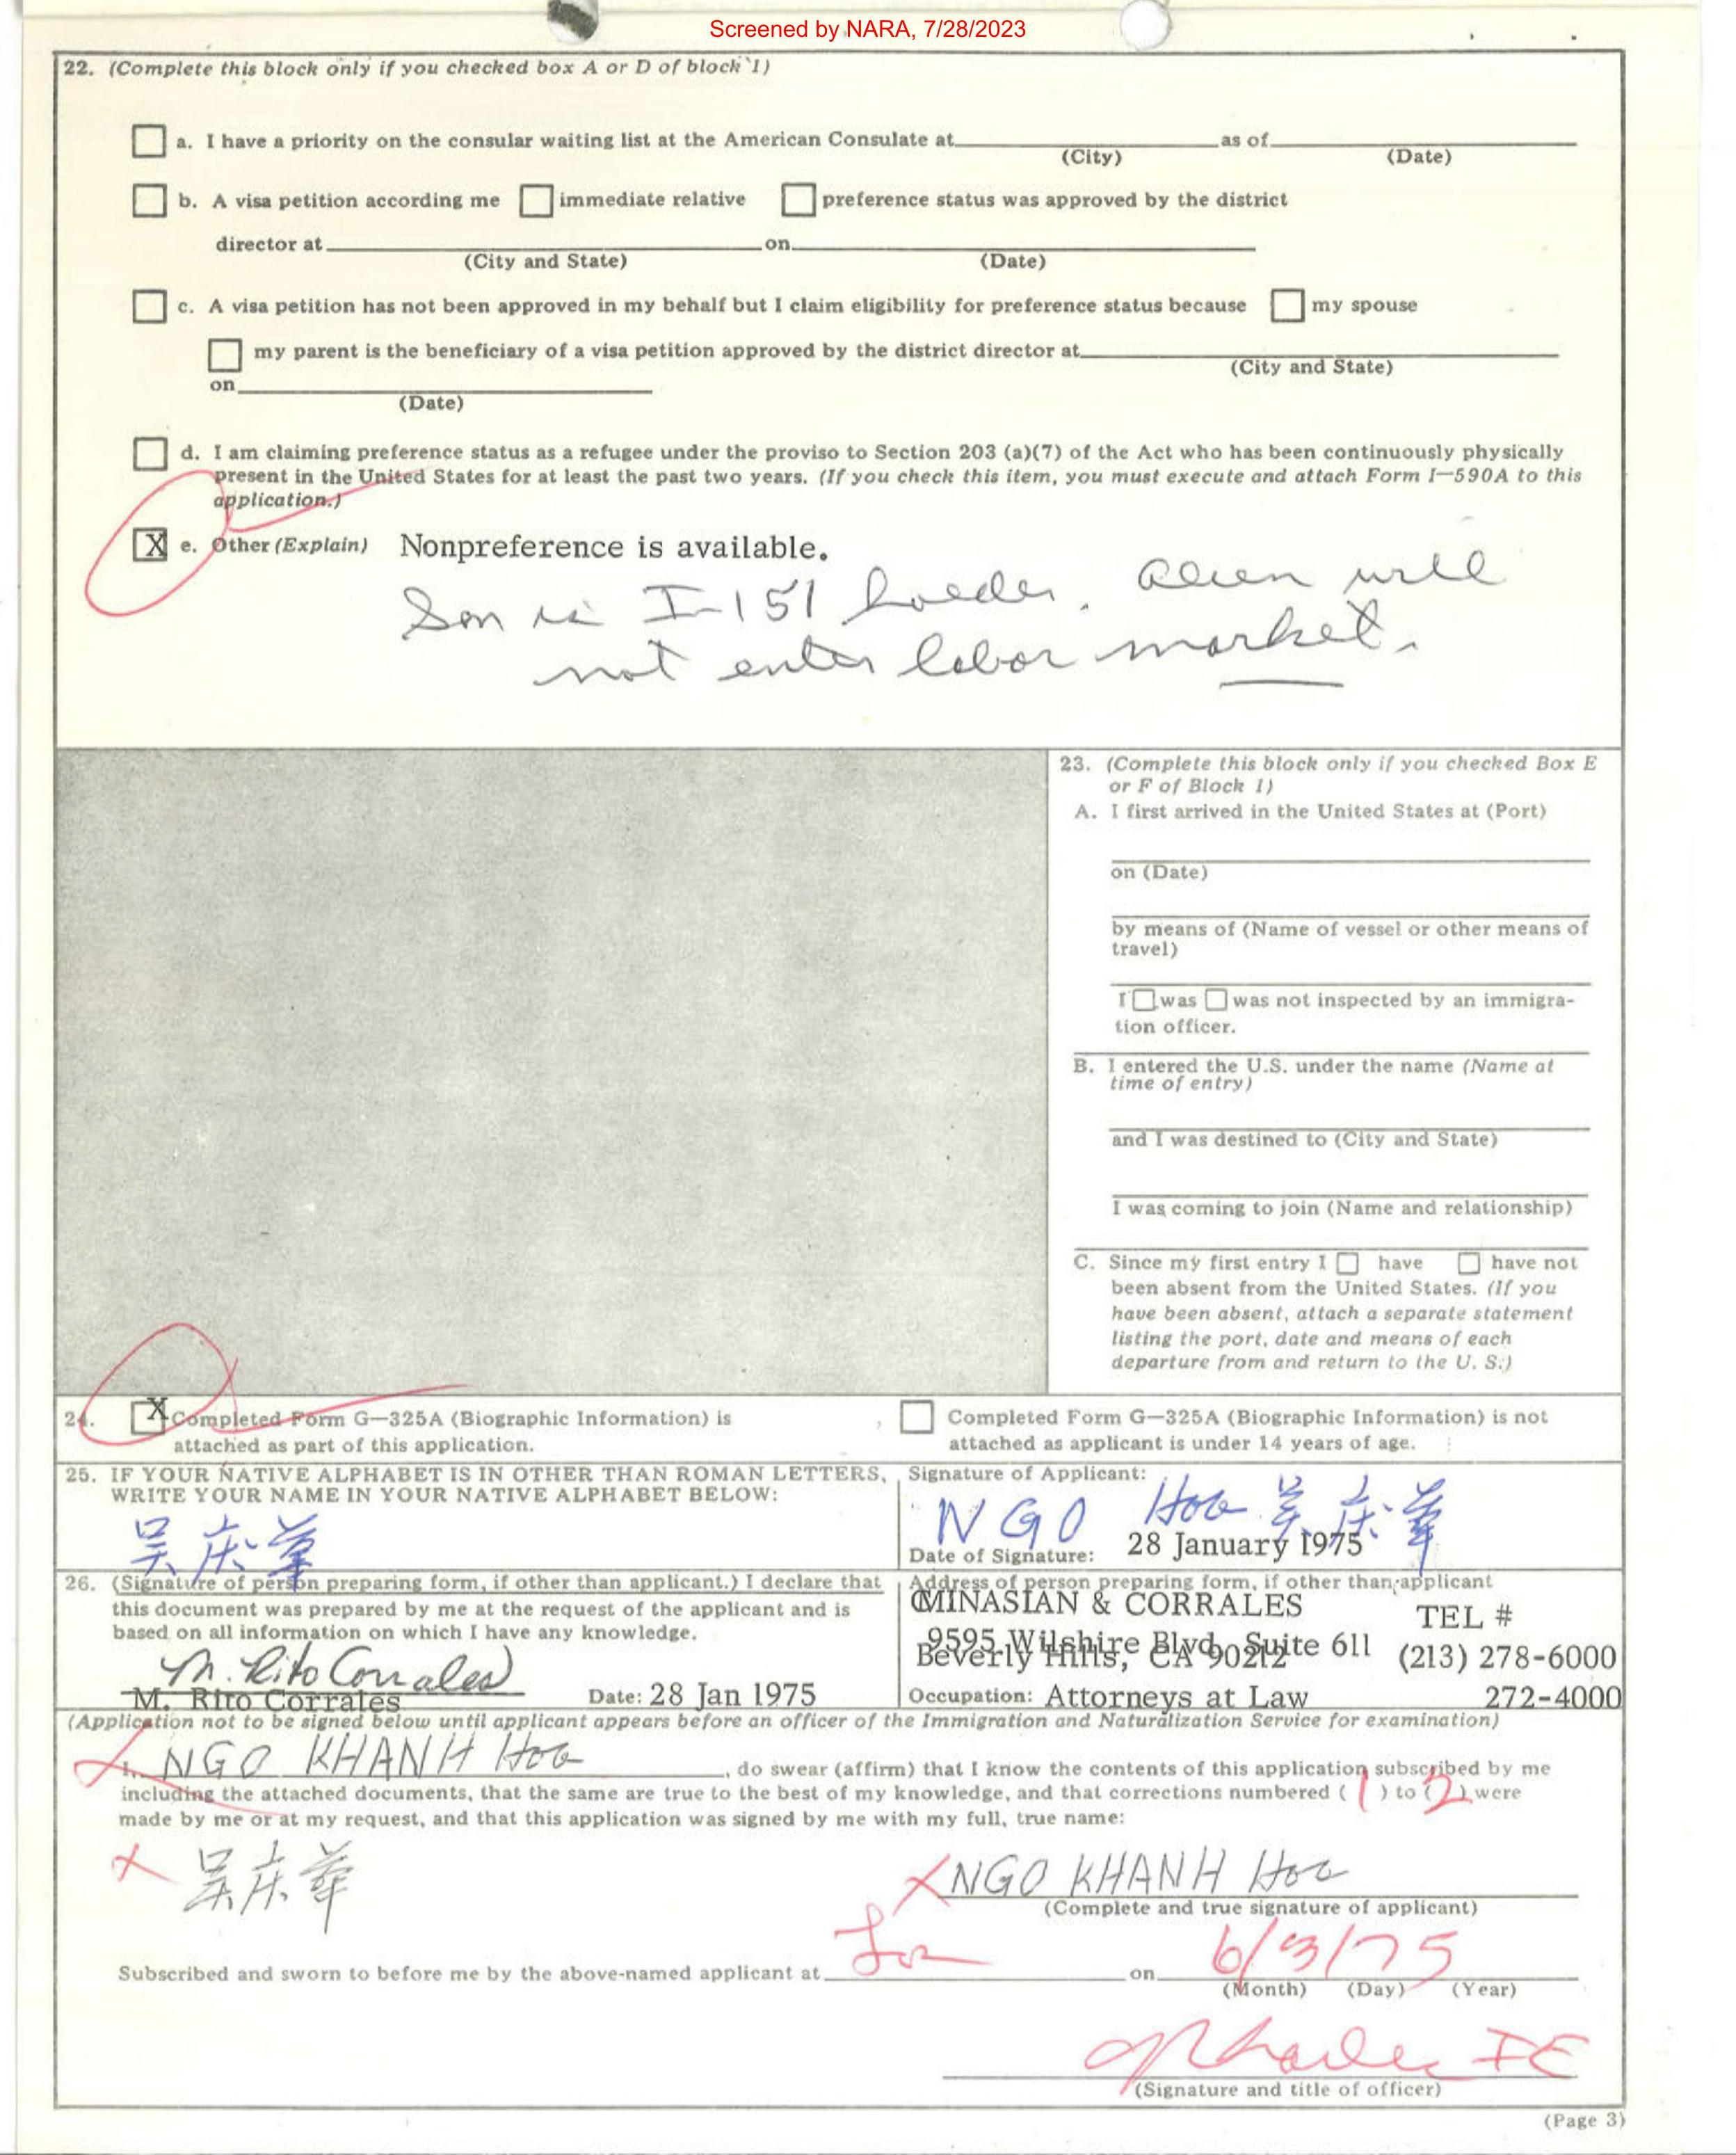 Screened by NARA, 7/28/2023
22. (Complete this block only if you checked box A or D of block 1)
a. I have a priority on the consular waiting list at the American Consulate at as of
(City) (Date)
b. A visa petition according me immediate relative preference status was approved by the district
director at on
(City and State) (Date)
c. A visa petition has not been approved in my behalf but I claim eligibility for preference status because my spouse
my parent is the beneficiary of a visa petition approved by the district director at
(City and State)
on
(Date)
d. I am claiming preference status as a refugee under the proviso to Section 203 (a)(7) of the Act who has been continuously physically
present in the United States for at least the past two years. (If you check this item, you must execute and attach Form I-590A to this
application.)
X e. Other (Explain) Nonpreference is available.
Son is I-151 holder. Alien will
not enter labor market.
23. (Complete this block only if you checked Box E
or F of Block 1)
A. I first arrived in the United States at (Port)
on (Date)
by means of (Name of vessel or other means of
travel)
I was was not inspected by an immigra-
tion officer.
B. I entered the U.S. under the name (Name at
time of entry)
and I was destined to (City and State)
I was coming to join (Name and relationship)
C. Since my first entry I have have not
been absent from the United States. (If you
have been absent, attach a separate statement
listing the port, date and means of each
departure from and return to the U. S.)
24. X Completed Form G-325A (Biographic Information) is
attached as part of this application.
Completed Form G-325A (Biographic Information) is not
attached as applicant is under 14 years of age.
25. IF YOUR NATIVE ALPHABET IS IN OTHER THAN ROMAN LETTERS,
WRITE YOUR NAME IN YOUR NATIVE ALPHABET BELOW:
吴庆華
Signature of Applicant:
NGO Hoa 吴庆華
Date of Signature: 28 January 1975
26. (Signature of person preparing form, if other than applicant.) I declare that
this document was prepared by me at the request of the applicant and is
based on all information on which I have any knowledge.
M. Rito Corrales
M. Rito Corrales Date: 28 Jan 1975
Address of person preparing form, if other than applicant
MINASIAN & CORRALES TEL #
9595 Wilshire Blvd, Suite 611
Beverly Hills, CA 90212 (213) 278-6000
Occupation: Attorneys at Law 272-4000
(Application not to be signed below until applicant appears before an officer of the Immigration and Naturalization Service for examination)
I, NGO KHANH Hoa, do swear (affirm) that I know the contents of this application subscribed by me
including the attached documents, that the same are true to the best of my knowledge, and that corrections numbered ( 1 ) to ( 2 ) were
made by me or at my request, and that this application was signed by me with my full, true name:
X 吴庆華
X NGO KHANH Hoa
(Complete and true signature of applicant)
Subscribed and sworn to before me by the above-named applicant at on 6/3/75
(Month) (Day) (Year)
IE
(Signature and title of officer)
(Page 3)